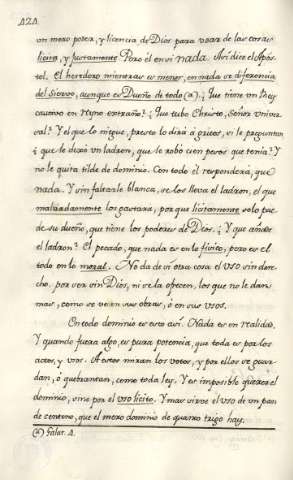 424
un mero poder, y licencia de Dios para usar de las cosas
licita, y justamente. Pero el en sí nada. Así dice el Apos-
tol. El heredero mientras es menor, en nada se diferencia
del Siervo, aunque es Dueño de todo (a). ¿Que tiene un Rey
cautivo en reyno extraño? ¿Que tubo Christo, Señor univer-
sal? Y el que lo niegue, presto lo dirá á gritos, si le preguntan
¿que le dexó un ladron, que le robó cien pesos que tenia? Y
no le quita tilde de dominio. Con todo el responderá, que
nada. Y sin faltarle blanca, se los lleva el ladron, el que
malvadamente los gastará, porque licitamente solo pue-
de su dueño, que tiene los poderes de Dios. ¿Y que añade
el ladron? El pecado, que nada es en lo fisico, pero es el
todo en lo moral. No da de si otra cosa el uso sin dere-
cho. por ser sin Dios, ni se la ofrecen, los que no le dan
mas, como se ve en sus obras, ó en sus usos.
En todo dominio es esto asi. Nada es en realidad.
Y quando fuera algo, es pura potencia, que toda es por los
actos, y uso. A estos miran los votos, y por ellos se guar-
dan, ó quebrantan, como toda ley. Y es imposible querer el
dominio, sino por el uso licito. Y mas sirve el uso de un pan
de centeno, que el mero dominio de quanto trigo hay.
(a) Galat. 4.